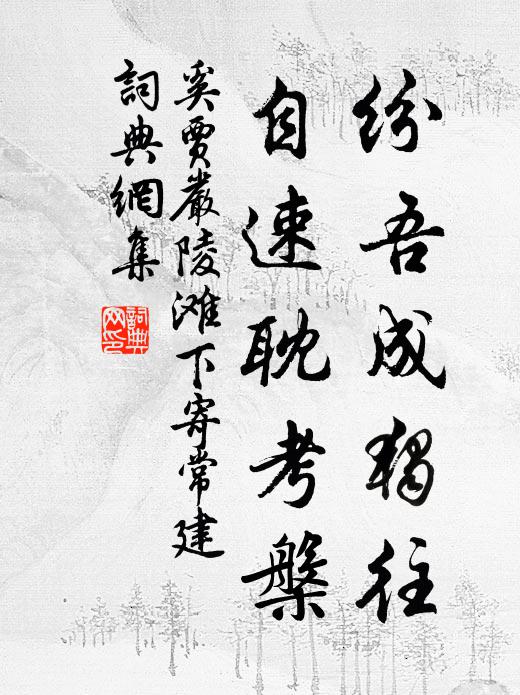 纷吾成獨往
自速耽考槃
奚賈嚴陵滩下寄常建
詞典網集
詞典网印